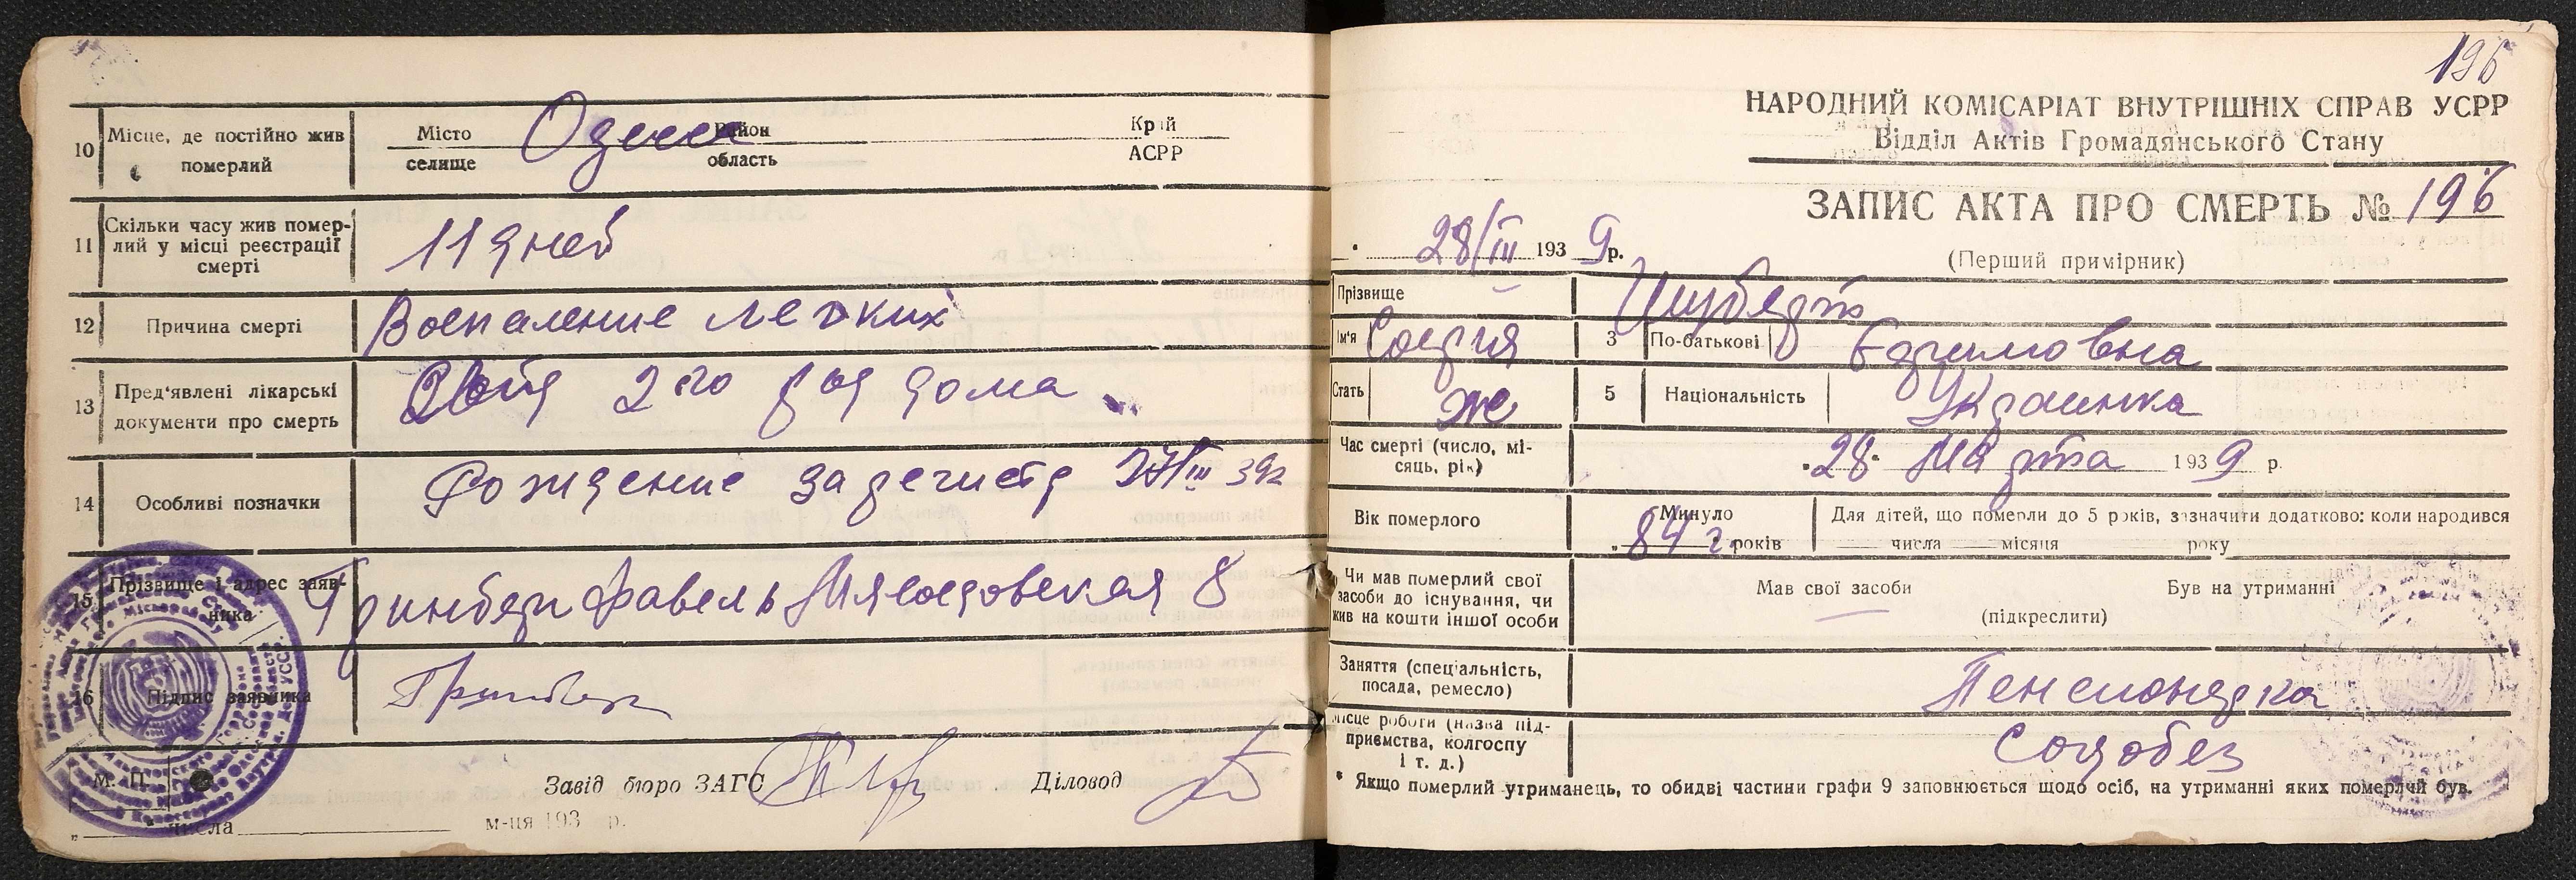 10 Місце, де постійно жив померлий
Місто селище Одесса Район область Край АСРР
11 Скільки часу жив помер-
лий у місці реєстрації
смерті
11 дней
12 Причина смерті
Воспаление легких
13 Пред'явлені лікарські
документи про смерть
2го рай дома
14 Особливі позначки
Рождение зарегистр 27/III 39г
15 Прізвище і адрес заяв-
ника
Гринберг Мясоедовская 8
16 Підпис заявника
Гринберг
М. П.
Завід бюро ЗАГС Діловод
„ числа м-ця 193 р.
196
НАРОДНИЙ КОМІСАРІАТ ВНУТРІШНІХ СПРАВ УСРР
Відділ Актів Громадянського Стану
ЗАПИС АКТА ПРО СМЕРТЬ № 196
28/III 1939р.
(Перший примірник)
Прізвище
Ім'я София 3 По-батькові Ефимовна
Стать ж 5 Національність Украинка
Час смерті (число, мі-
сяць, рік)
28 Марта 1939 р.
Вік померлого
Минуло
84 г. років
Для дітей, що померли до 5 років, зазначити додатково: коли народився
числа місяця року
Чи мав померлий свої
засоби до існування, чи
жив на кошти іншої особи
Мав свої засоби Був на утриманні
(підкреслити)
Заняття (спеціальність,
посада, ремесло)
Пенсионерка
Місце роботи (назва під-
приємства, колгоспу
і т. д.)
Соцобез
* Якщо померлий утриманець, то обидві частини графи 9 заповнюється щодо осіб, на утриманні яких померлий був.